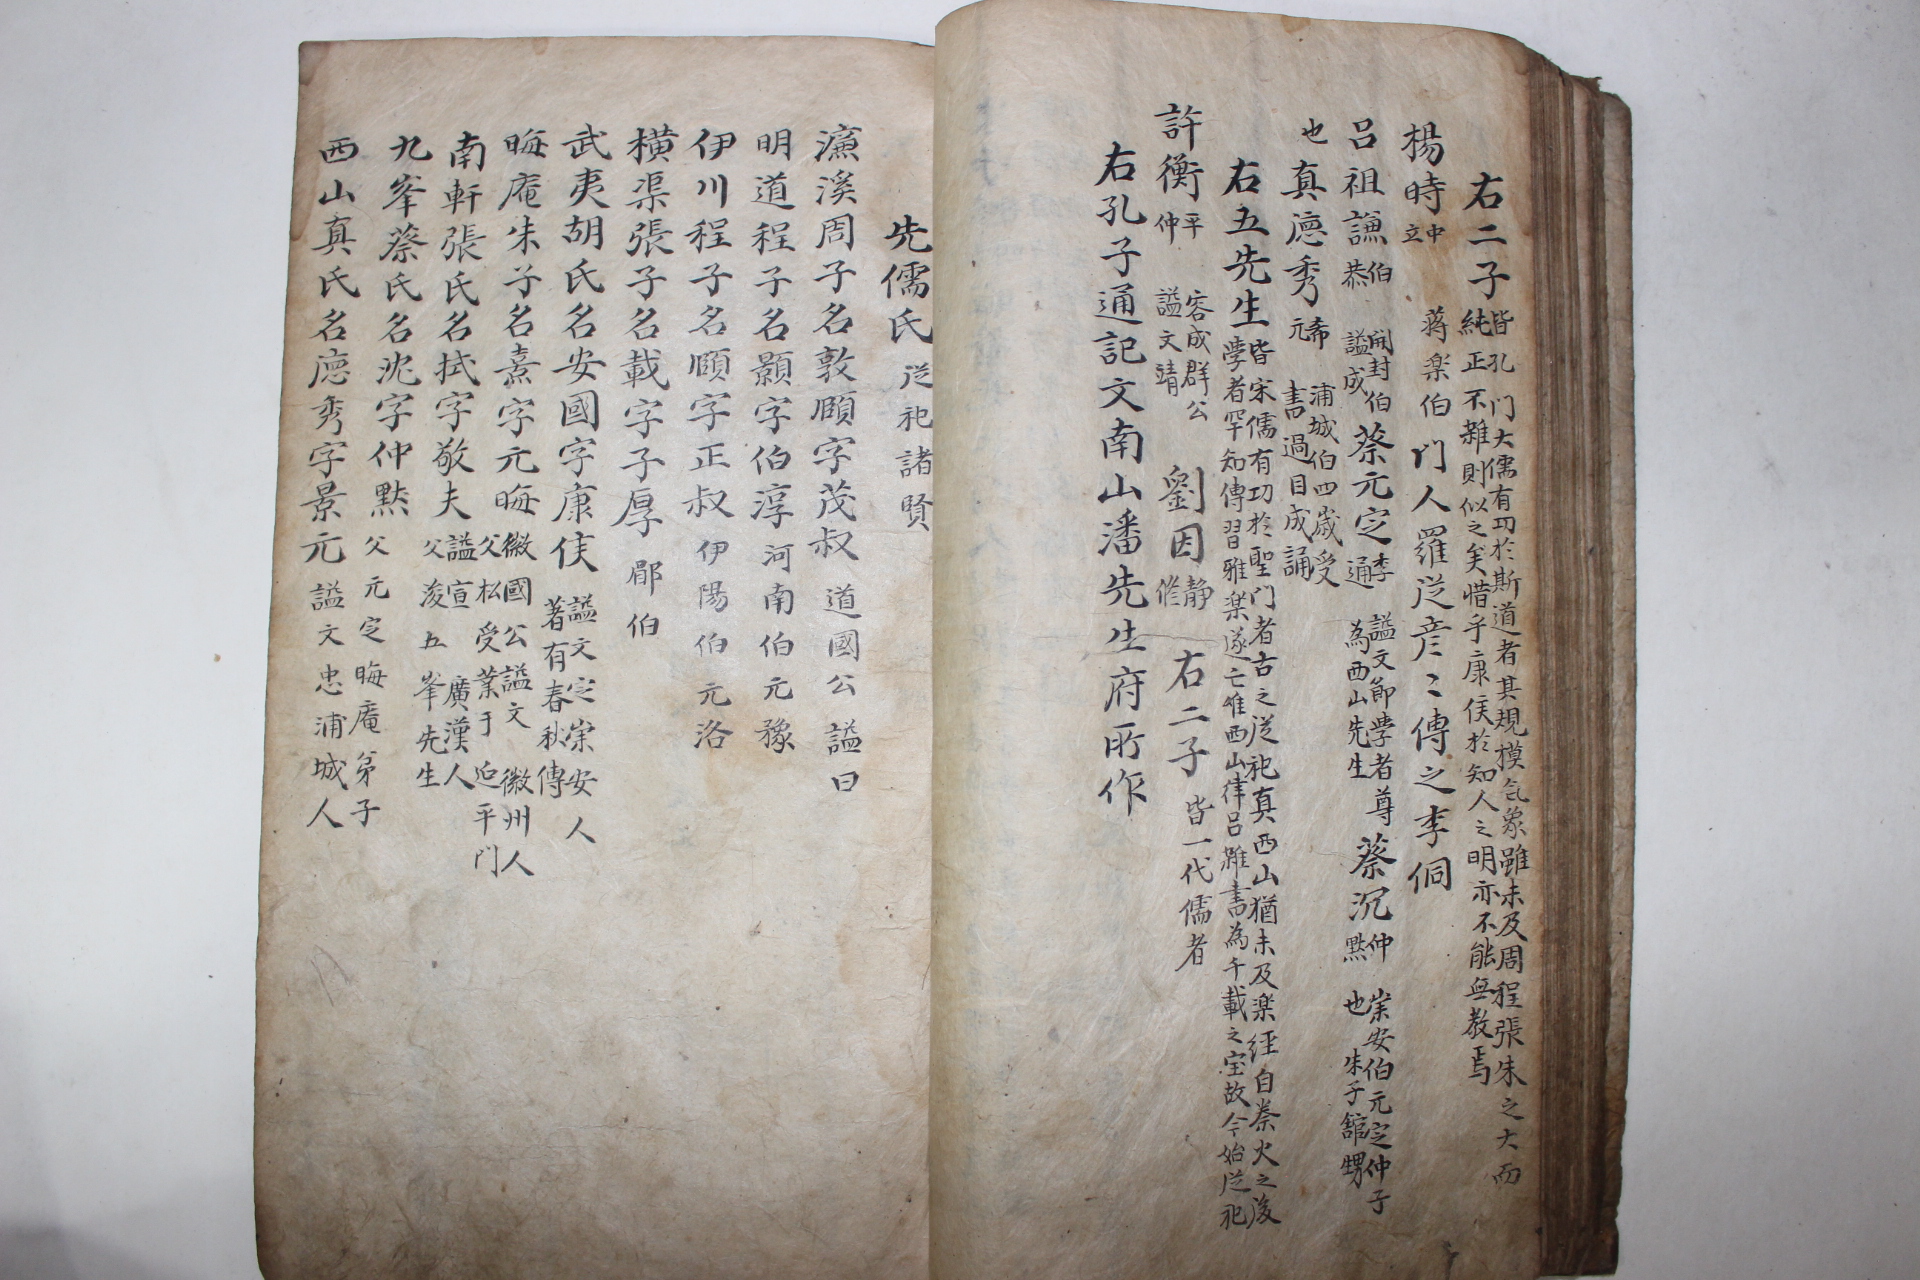 右二子 皆孔门大儒有功於斯道者其規模气象雖未及周程張朱之大而
純正不雜則似之矣惜乎康侯於知人之明亦不能無教焉
楊時 中立 蔣楽伯 门人羅従彦〻傳之李侗
呂祖謙 伯恭 開封伯 謚成 蔡元定 李通 謚文節學者尊為西山先生 蔡沉 仲黙 崇安伯元定仲子也 朱子舘甥
也 真徳秀 希元 浦城伯四歳受書過目成誦
右五先生 皆宋儒有功於聖门者古之従祀真西山猶未及楽経自秦火之後
學者罕知傳習雅楽遂亡惟西山律呂雖書為千載之宝故今始従祀
許衡 平仲 容成群公 謚文靖 劉因 静修 右二子 皆一代儒者
右孔子通記文南山潘先生府所作
先儒氏 従祀諸賢
濂溪周子名敦頤字茂叔 道國公 謚曰
明道程子名顥字伯淳 河南伯 元豫
伊川程子名頤字正叔 伊陽伯 元洛
橫渠張子名載字子厚 郿伯
武夷胡氏名安國字康侯 謚文定崇安人 著有春秋傳
晦庵朱子名熹字元晦 徽國公謚文 徽州人 父松受業于延平門
南軒張氏名拭字敬夫 謚宣 廣漢人 父浚五峯先生
九峯蔡氏名沈字仲黙 父元定晦庵弟子
西山真氏名徳秀字景元 謚文忠浦城人